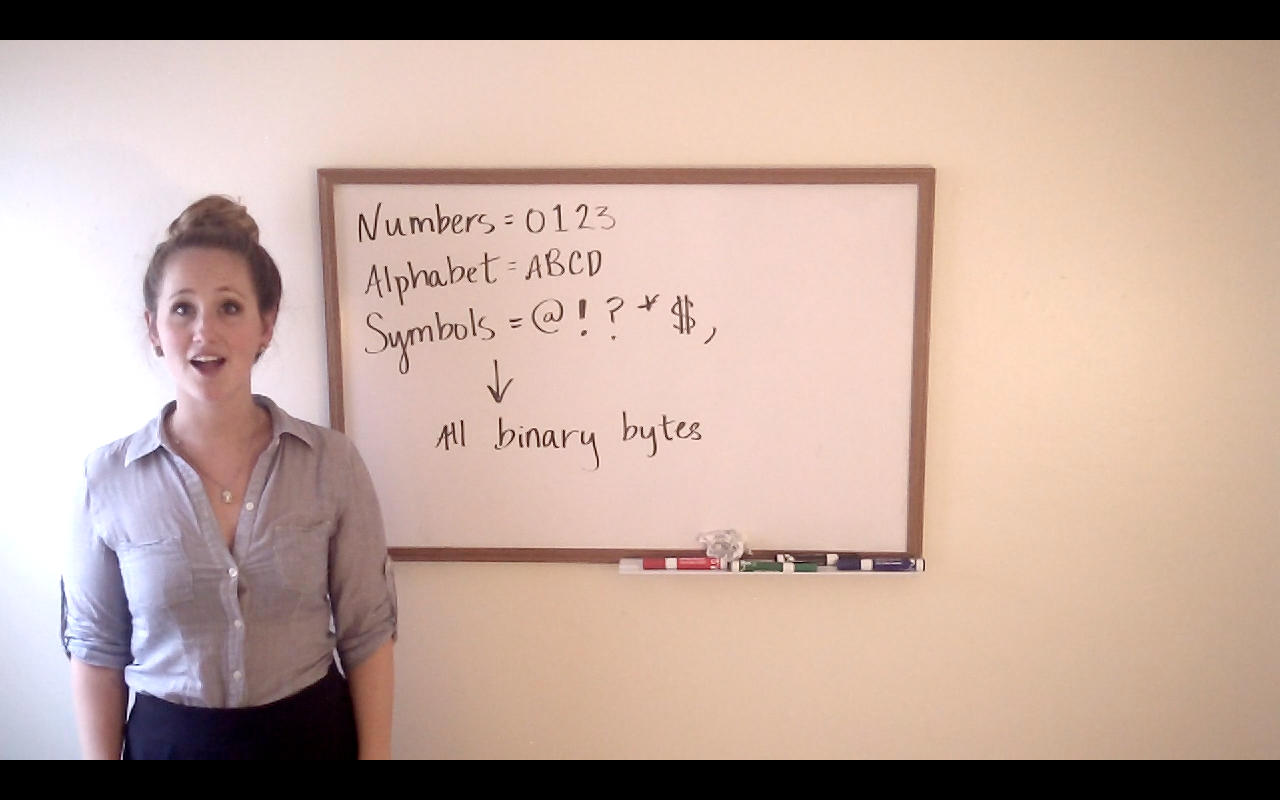 Numbers = 0123
Alphabet = ABCD
Symbols = @ ! ? * $ ,
↓
All binary bytes